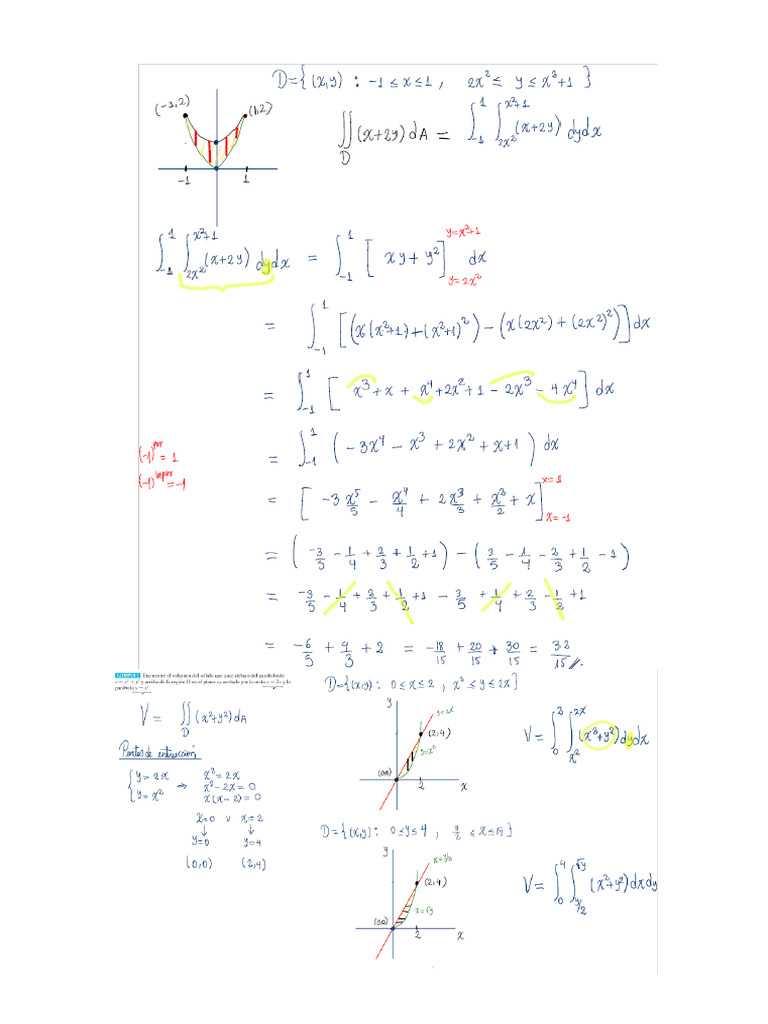 D={(x,y) : -1 ≤ x ≤ 1 , 2x² ≤ y ≤ x²+1 }
(-1,2) (1,2)
-1 1
∬_D (x+2y) dA = ∫_{-1}^{1} ∫_{2x²}^{x²+1} (x+2y) dydx
∫_{-1}^{1} ∫_{2x²}^{x²+1} (x+2y) dydx = ∫_{-1}^{1} [ xy + y² ]_{y=2x²}^{y=x²+1} dx
= ∫_{-1}^{1} [(x(x²+1)+(x²+1)²) - (x(2x²)+(2x²)²)] dx
= ∫_{-1}^{1} [ x³ + x + x⁴ + 2x² + 1 - 2x³ - 4x⁴ ] dx
(-1)^{par} = 1
(-1)^{impar} = -1
= ∫_{-1}^{1} ( -3x⁴ - x³ + 2x² + x + 1 ) dx
= [ -3 x⁵/5 - x⁴/4 + 2 x³/3 + x²/2 + x ]_{x=-1}^{x=1}
= ( -3/5 - 1/4 + 2/3 + 1/2 + 1 ) - ( 3/5 - 1/4 - 2/3 + 1/2 - 1 )
= -3/5 - 1/4 + 2/3 + 1/2 + 1 - 3/5 + 1/4 + 2/3 - 1/2 + 1
= -6/5 + 4/3 + 2 = -18/15 + 20/15 + 30/15 = 32/15 //.
EJEMPLO 2 Encuentre el volumen del sólido que yace debajo del paraboloide
z = x² + y² y arriba de la región D en el plano xy acotado por la recta y = 2x y la
parábola y = x².
V = ∬_D (x²+y²) dA
Puntos de intersección
{ y = 2x
{ y = x²
⇒ x² = 2x
x² - 2x = 0
x(x-2) = 0
x=0 ∨ x=2
↓ ↓
y=0 y=4
(0,0) (2,4)
D={(x,y) : 0 ≤ x ≤ 2 , x² ≤ y ≤ 2x}
y
y=2x
(2,4)
y=x²
(0,0)
2 x
V = ∫_{0}^{2} ∫_{x²}^{2x} (x²+y²) dydx
D={(x,y) : 0 ≤ y ≤ 4 , y/2 ≤ x ≤ √y}
y
x=y/2
(2,4)
x=√y
(0,0)
2 x
V = ∫_{0}^{4} ∫_{y/2}^{√y} (x²+y²) dxdy